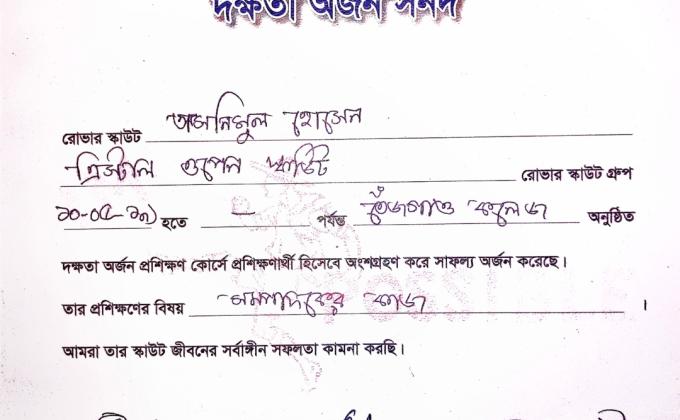 দক্ষতা অর্জন সনদ
রোভার স্কাউট তাসনিমুল হোসেন
ক্রিস্টাল ওপেন স্কাউট রোভার স্কাউট গ্রুপ
হতে — পর্যন্ত তেঁজগাও কলেজ অনুষ্ঠিত
দক্ষতা অর্জন প্রশিক্ষণ কোর্সে প্রশিক্ষণার্থী হিসেবে অংশগ্রহণ করে সাফল্য অর্জন করেছে।
তার প্রশিক্ষণের বিষয় সম্পাদকের কাজ ।
আমরা তার স্কাউট জীবনের সর্বাঙ্গীন সফলতা কামনা করছি।